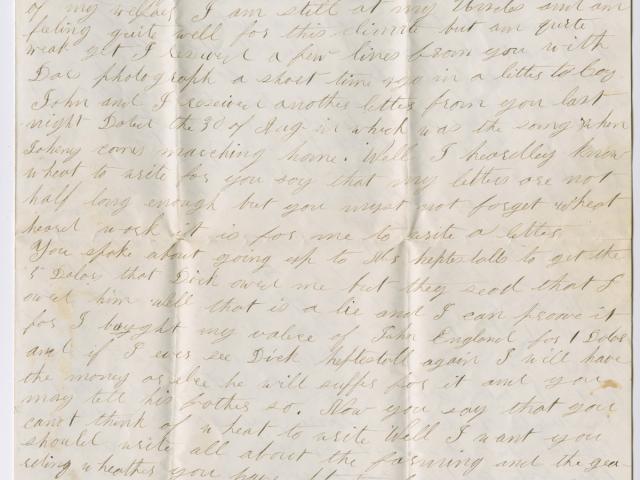 of my welfare I am still at my Uncles and am
feeling quite well for this climite but am quite
weak yet I received a few lines from you with
Docs photograph a short time ago in a letter to Coz
John and I received another letter from you last
night Dated the 30 of Aug in which was the song when
Joheny comes marching home. Well I heardley know
wheat to write for you say that my letters are not
half long enough but you must not forget wheat
heard work it is for me to write a letter
You spoke about going up to Mrs heptestalls to get the
5 Dolars that Dick owed me but they seod that I
owed him well that is a lie and I can proove it
for I bought my valice of John England for 1 Dolar
and if I ever see Dick heptestall again I will have
the money or else he will suffer for it and you
may tell his father so. Now you say that you
cant think of wheat to write Well I want you
should write all about the farming and the
wheather you have